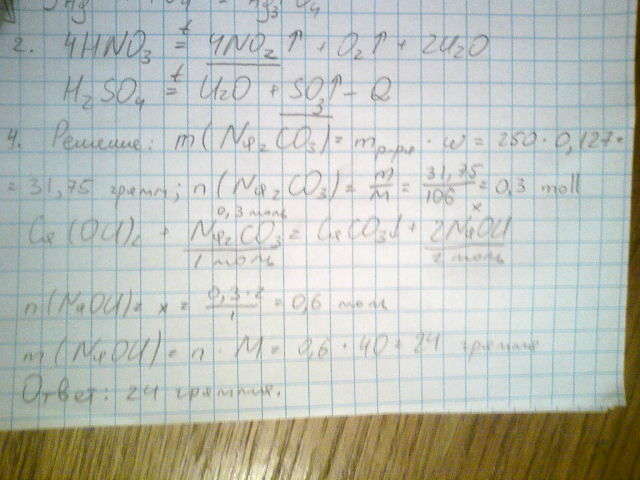 2. 4HNO₃ =ᵗ 4NO₂↑ + O₂↑ + 2H₂O
H₂SO₄ =ᵗ H₂O + SO₃↑ - Q
4. Решение: m(Na₂CO₃) = m р-ра · w = 250 · 0,127 =
= 31,75 грамм; n(Na₂CO₃) = m/M = 31,75/106 = 0,3 moll
0,3 моль x
Ca(OH)₂ + Na₂CO₃ = CaCO₃↓ + 2NaOH
1 моль 2 моль
n(NaOH) = x = 0,3·2/1 = 0,6 моль
m(NaOH) = n · M = 0,6 · 40 = 24 грамма
Ответ: 24 грамма.